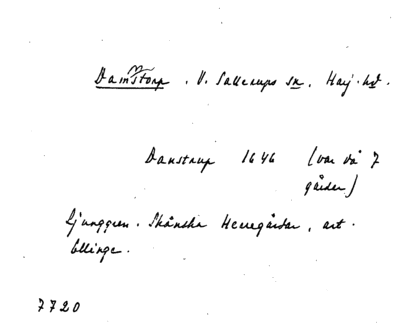 Damstorp. V. Sallerups sn. Harj. hd.
Danstrup 1646 (var då 7
gårder)
Ljunggren. Skånska Herregårdar, art.
Ellinge.
7720